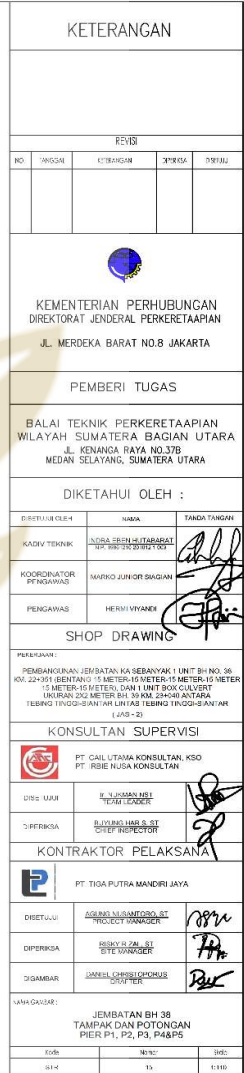 KETERANGAN
REVISI
NO. TANGGAL KETERANGAN DIPERIKSA DISETUJUI
KEMENTERIAN PERHUBUNGAN
DIREKTORAT JENDERAL PERKERETAAPIAN
JL. MERDEKA BARAT NO.8 JAKARTA
PEMBERI TUGAS
BALAI TEKNIK PERKERETAAPIAN
WILAYAH SUMATERA BAGIAN UTARA
JL. KENANGA RAYA NO.37B
MEDAN SELAYANG, SUMATERA UTARA
DIKETAHUI OLEH :
DISETUJUI OLEH NAMA TANDA TANGAN
KADIV TEKNIK INDRA EBEN HUTABARAT
KOORDINATOR PENGAWAS MARKO JUNIOR SIAGIAN
PENGAWAS HERMI VIYANDI
SHOP DRAWING
PEKERJAAN :
PEMBANGUNAN JEMBATAN KA SEBANYAK 1 UNIT BH NO. 38
KM. 22+351 (BENTANG 15 METER-15 METER-15 METER-15 METER
15 METER-15 METER), DAN 1 UNIT BOX CULVERT
UKURAN 2X2 METER BH. 39 KM. 23+040 ANTARA
TEBING TINGGI-SIANTAR LINTAS TEBING TINGGI-SIANTAR
( JAS - 2)
KONSULTAN SUPERVISI
PT CAIL UTAMA KONSULTAN, KSO
PT IRBIE NUSA KONSULTAN
DISETUJUI Ir. NUKMAN NST
TEAM LEADER
DIPERIKSA BUYUNG HAR S, ST
CHIEF INSPECTOR
KONTRAKTOR PELAKSANA
PT TIGA PUTRA MANDIRI JAYA
DISETUJUI AGUNG NUSANTORO, ST
PROJECT MANAGER
DIPERIKSA RISKY RIZAL, ST
SITE MANAGER
DIGAMBAR DANIEL CHRISTOPORUS
DRAFTER
NAMA GAMBAR :
JEMBATAN BH 38
TAMPAK DAN POTONGAN
PIER P1, P2, P3, P4&P5
Kode Nomor Skala
STR 15 1:110